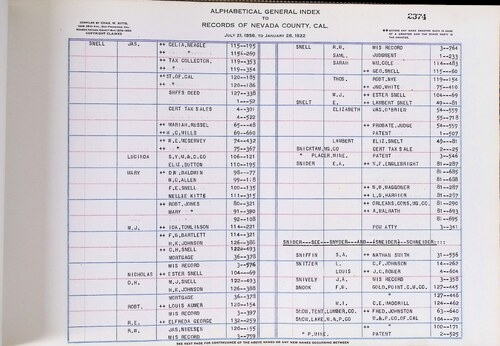 ALPHABETICAL GENERAL INDEX
TO
RECORDS OF NEVADA COUNTY, CAL.
JULY 21, 1856, TO JANUARY 28, 1922
2374
COPYRIGHT CLAIMED
SNELL JAS. ++ CELIA, NEAGLE 115--195
++ " 115½-269
++ TAX COLLECTOR, 119--353
++ " 119--354
++ ST, OF, CAL 120--185
++ " 120--186
SHFFS DEED 127--335
1---52
CERT TAX SALES 4--301
4--522
++ MARIAH, RUSSEL 65---48
++ H, C, MILLS 69--660
++ W.E, MESERVEY 74--432
++ " 75--367
LUCINDA S.Y.M.&.D.CO 106--121
ELIZ, SUTTON 110--195
MARY ++ DW, BALDWIN 98---77
W.C, ALLER 99--418
F.E, SNELL 100--135
NELLIE KITTS 111--315
++ ROBT, JONES 80--321
MARY " 91--390
92--108
M.J, ++ IDA, TOMLINSON 114--221
++ F.G, BARTLETT 114--321
H,K, JOHNSON 126--388
O.H, SNELL 122--493
MORTGAGE 36--378
MIS RECORD 3--576
NICHOLAS ++ ESTER SNELL 104---69
O.H, M.J, SNELL 122--493
H,K, JOHNSON 126--388
MORTGAGE 36--378
ROBT, ++ LOUIS AUMER, 120--154
MIS RECORD 3--397
R.E, ++ ELFREDA GEORGE 132--259
R.H, JAS, NIELSEN 120--155
MIS RECORD 3--759
SNELL R.H, MIS RECORD 3--764
SAML, JUDGMENT 1--233
SARAH WM, COLE 114--483
++ GEO, SNELL 115---60
THOS, ROBT, NYE 119--154
++ JNO, WHITE 75--410
W.J, ++ ESTER SNELL 104---69
SNELT E, ++ LAMBERT SNELT 49---81
ELIZABETH WM, O'BRIEN 54--559
55--718
++ PROBATE, JUDGE 54--555
PATENT 1--507
LAMBERT ELIZ, SNELT 49---81
SNICKTAW, MG, CO CERT TAX SALE 2---25
" PLACER, MINE, PATENT 3--546
SNIDER E.A, ++ W.F, ENGLEBRIGHT 81--287
81--685
81--688
++ W.M, WAGGONER 81--287
++ L.G, HARRIER 81--287
++ ORLEANS, CONS, MG, CO 81--290
++ A, WALRATH 81--693
81--695
POW ATTY 3--341
SNIDER---SEE---SNYDER---AND---SNEIDER---SCHNEIDER
SNIFFIN S.A, ++ NATHAN SMITH 31--556
SNITZER L, C,F, JOHNSON 14--262
LOUIS ++ J,C, COKER 4--604
SNIVELY J.A, MIS RECORD 3--358
SNOOK F.N, GOLD, POINT, C, MG, CO 127--445
++ " 127--446
W.I, C.E, HADDRILL 104--462
SNOW, TENT, LUMBER, CO, ++ FRED, JOHNSTON 63--640
SNOW, LAKE, W,&,P,CO W,&,P,CO, OF CAL 104---70
++ " 100--171
" P, MINE, PATENT 2--525